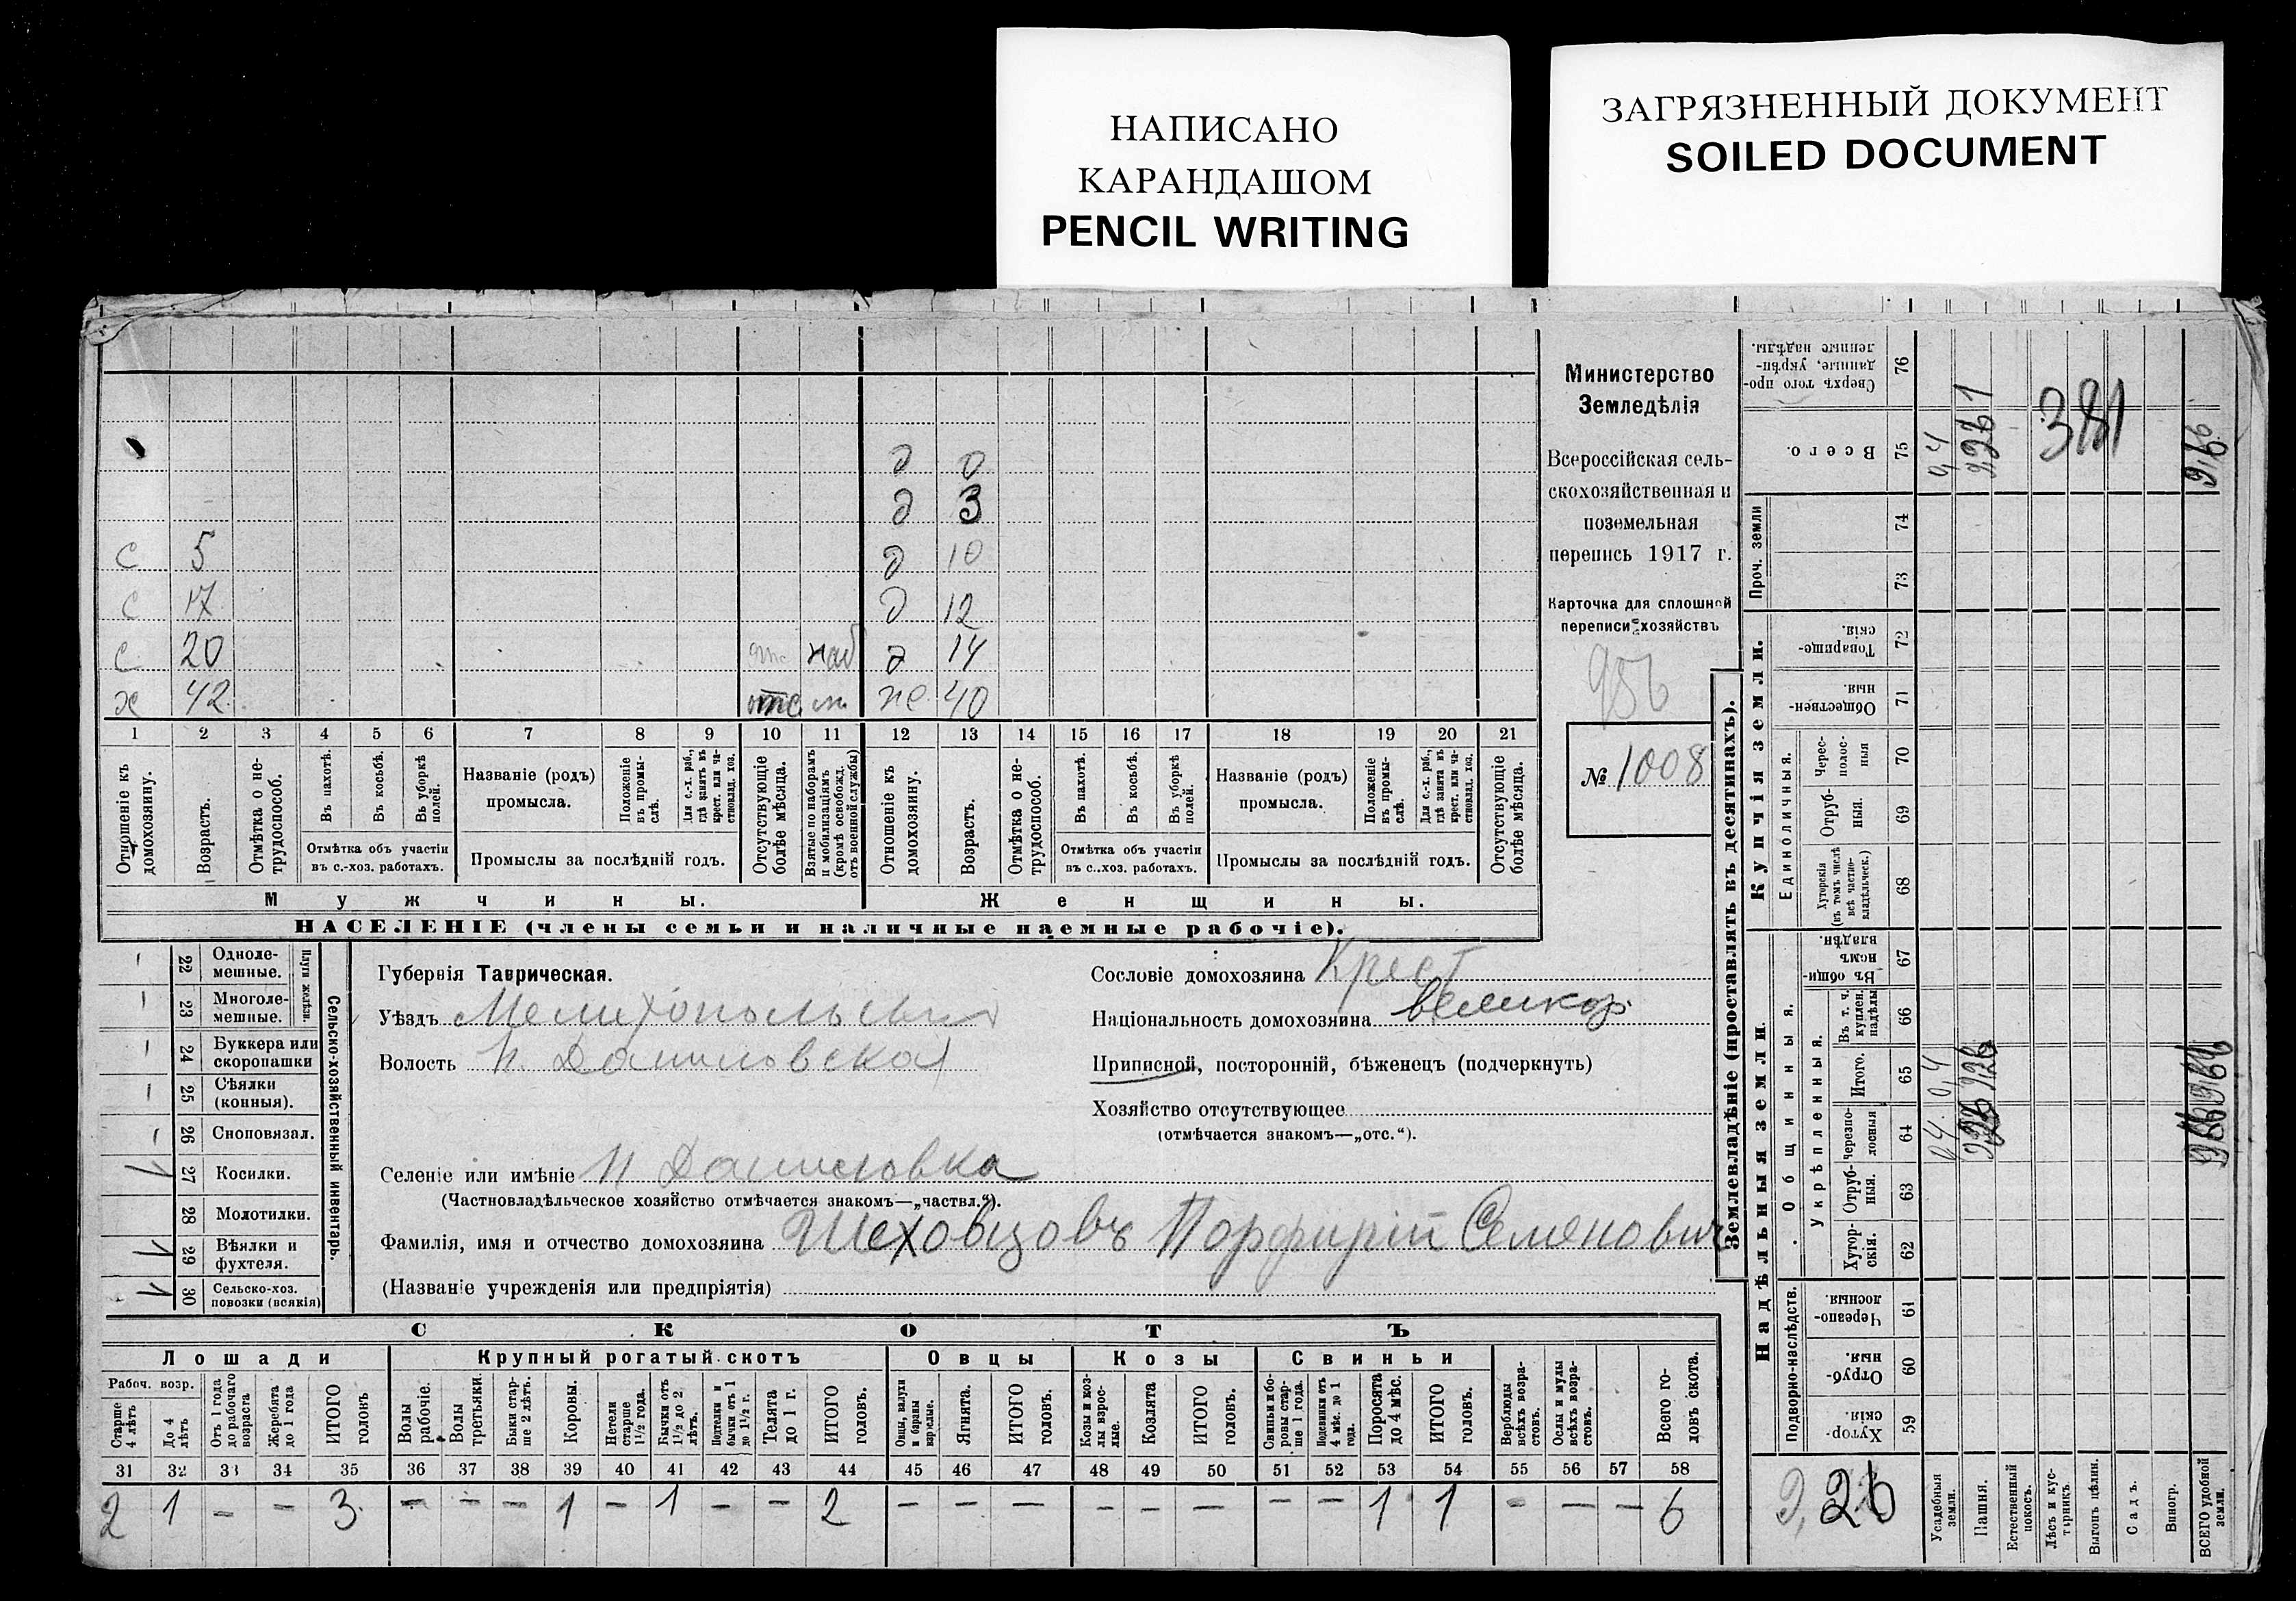 НАПИСАНО
КАРАНДАШОМ
PENCIL WRITING
ЗАГРЯЗНЕННЫЙ ДОКУМЕНТ
SOILED DOCUMENT
Министерство
Земледѣлія
Всероссійская сель-
скохозяйственная и
поземельная
перепись 1917 г.
Карточка для сплошной
переписи хозяйствъ
956
№ 1008
д 0
д 3
с 5 д 10
с 17 д 12
с 20 наб д 14
х 42 отс же 40
1 2 3 4 5 6 7 8 9 10 11 12 13 14 15 16 17 18 19 20 21
Отношеніе къ домохозяину.
Возрастъ.
Отмѣтка о не-трудоспособ.
Въ пахотѣ.
Въ косьбѣ.
Въ уборкѣ полей.
Отмѣтка объ участіи
въ с.-хоз. работахъ.
Названіе (родъ)
промысла.
Положеніе въ промы-слѣ.
Для с.-х. раб., гдѣ занятъ въ крест. или ча-стновлад. хоз.
Промыслы за послѣдній годъ.
Отсутствующіе болѣе мѣсяца.
Взятые по наборамъ и мобилизаціямъ (кромѣ освобожд. отъ военной службы)
Отношеніе къ домохозяину.
Возрастъ.
Отмѣтка о не-трудоспособ.
Въ пахотѣ.
Въ косьбѣ.
Въ уборкѣ полей.
Отмѣтка объ участіи
въ с..хоз. работахъ.
Названіе (родъ)
промысла.
Положеніе въ промы-слѣ.
Для с.-х. раб., гдѣ занята въ крест. или ча-стновлад. хоз.
Промыслы за послѣдній годъ.
Отсутствующіе болѣе мѣсяца.
Мужчины. Женщины.
НАСЕЛЕНІЕ (члены семьи и наличные наемные рабочіе).
22 Одноле-мешные.
23 Многоле-мешные.
Плуги желѣзн.
24 Буккера или скоропашки
25 Сѣялки (конныя).
26 Сноповязал.
27 Косилки.
28 Молотилки.
29 Вѣялки и фухтеля.
30 Сельско-хоз. повозки (всякія)
Сельско-хозяйственный инвентарь.
Губернія Таврическая.
Уѣздъ Мелитопольскій
Волость Н. Даниловская
Селеніе или имѣніе Н Даниловка
(Частновладѣльческое хозяйство отмѣчается знакомъ—„частвл.“).
Фамилія, имя и отчество домохозяина Шеховцовъ Порфирій Семенович
(Названіе учрежденія или предпріятія)
Сословіе домохозяина Крест
Національность домохозяина великор.
Приписной, посторонній, бѣженецъ (подчеркнуть)
Хозяйство отсутствующее
(отмѣчается знакомъ—„отс.“).
СКОТЪ
Лошади Крупный рогатый скотъ Овцы Козы Свиньи
Рабоч. возр.
Старше 4 лѣтъ
До 4 лѣтъ
Отъ 1 года до рабочаго возраста
Жеребята до 1 года
ИТОГО головъ
Волы рабочіе.
Волы третьяки.
Быки стар-ше 2 лѣтъ.
Коровы.
Нетели старше 1½ года.
Бычки отъ 1½ до 2 лѣтъ.
Подтелки и бычки отъ 1 до 1½ г.
Телята до 1 г.
ИТОГО головъ.
Овцы, валухи и бараны взрослые.
Ягнята.
ИТОГО головъ.
Козы и коз-лы взрос-лые.
Козлята
ИТОГО головъ.
Свиньи и бо-ровы стар-ше 1 года.
Подсвинки отъ 4 мѣс. до 1 года.
Поросята до 4 мѣс.
ИТОГО головъ.
Верблюды всѣхъ возра-стовъ.
Ослы и мулы всѣхъ возра-стовъ.
Всего го-ловъ скота.
31 32 33 34 35 36 37 38 39 40 41 42 43 44 45 46 47 48 49 50 51 52 53 54 55 56 57 58
2 1 - - 3 - - - 1 - 1 - - 2 - - - - - - - - 1 1 - - - 6
Землевладѣніе (проставлять въ десятинахъ).
Сверхъ того про-данные, укрѣп-ленные надѣлы. 76
Всего. 75
Проч. земли 74 73
Купчія земли.
Товарище-скія. 72
Обществен-ныя. 71
Единоличныя.
Черес-полос-ныя 70
Отруб-ныя. 69
Хуторскія (въ томъ числѣ всѣ частно-владѣльческ.) 68
Надѣльныя земли.
Общинныя.
Въ общи-номъ владѣн. 67
Укрѣпленныя.
Въ т. ч. куплен. надѣлы 66
Итого. 65
Черезпо-лосныя 64
Отруб-ныя. 63
Хутор-скія. 62
Подворно-наслѣдств.
Черезпо-лосныя. 61
Отруб-ныя. 60
Хутор-скія. 59
381
Усадебныя земли.
Пашня.
Естественный покосъ.
Лѣсъ и кус-тарникъ.
Выгонъ цѣлин.
Садъ.
Виногр.
ВСЕГО удобной земли.